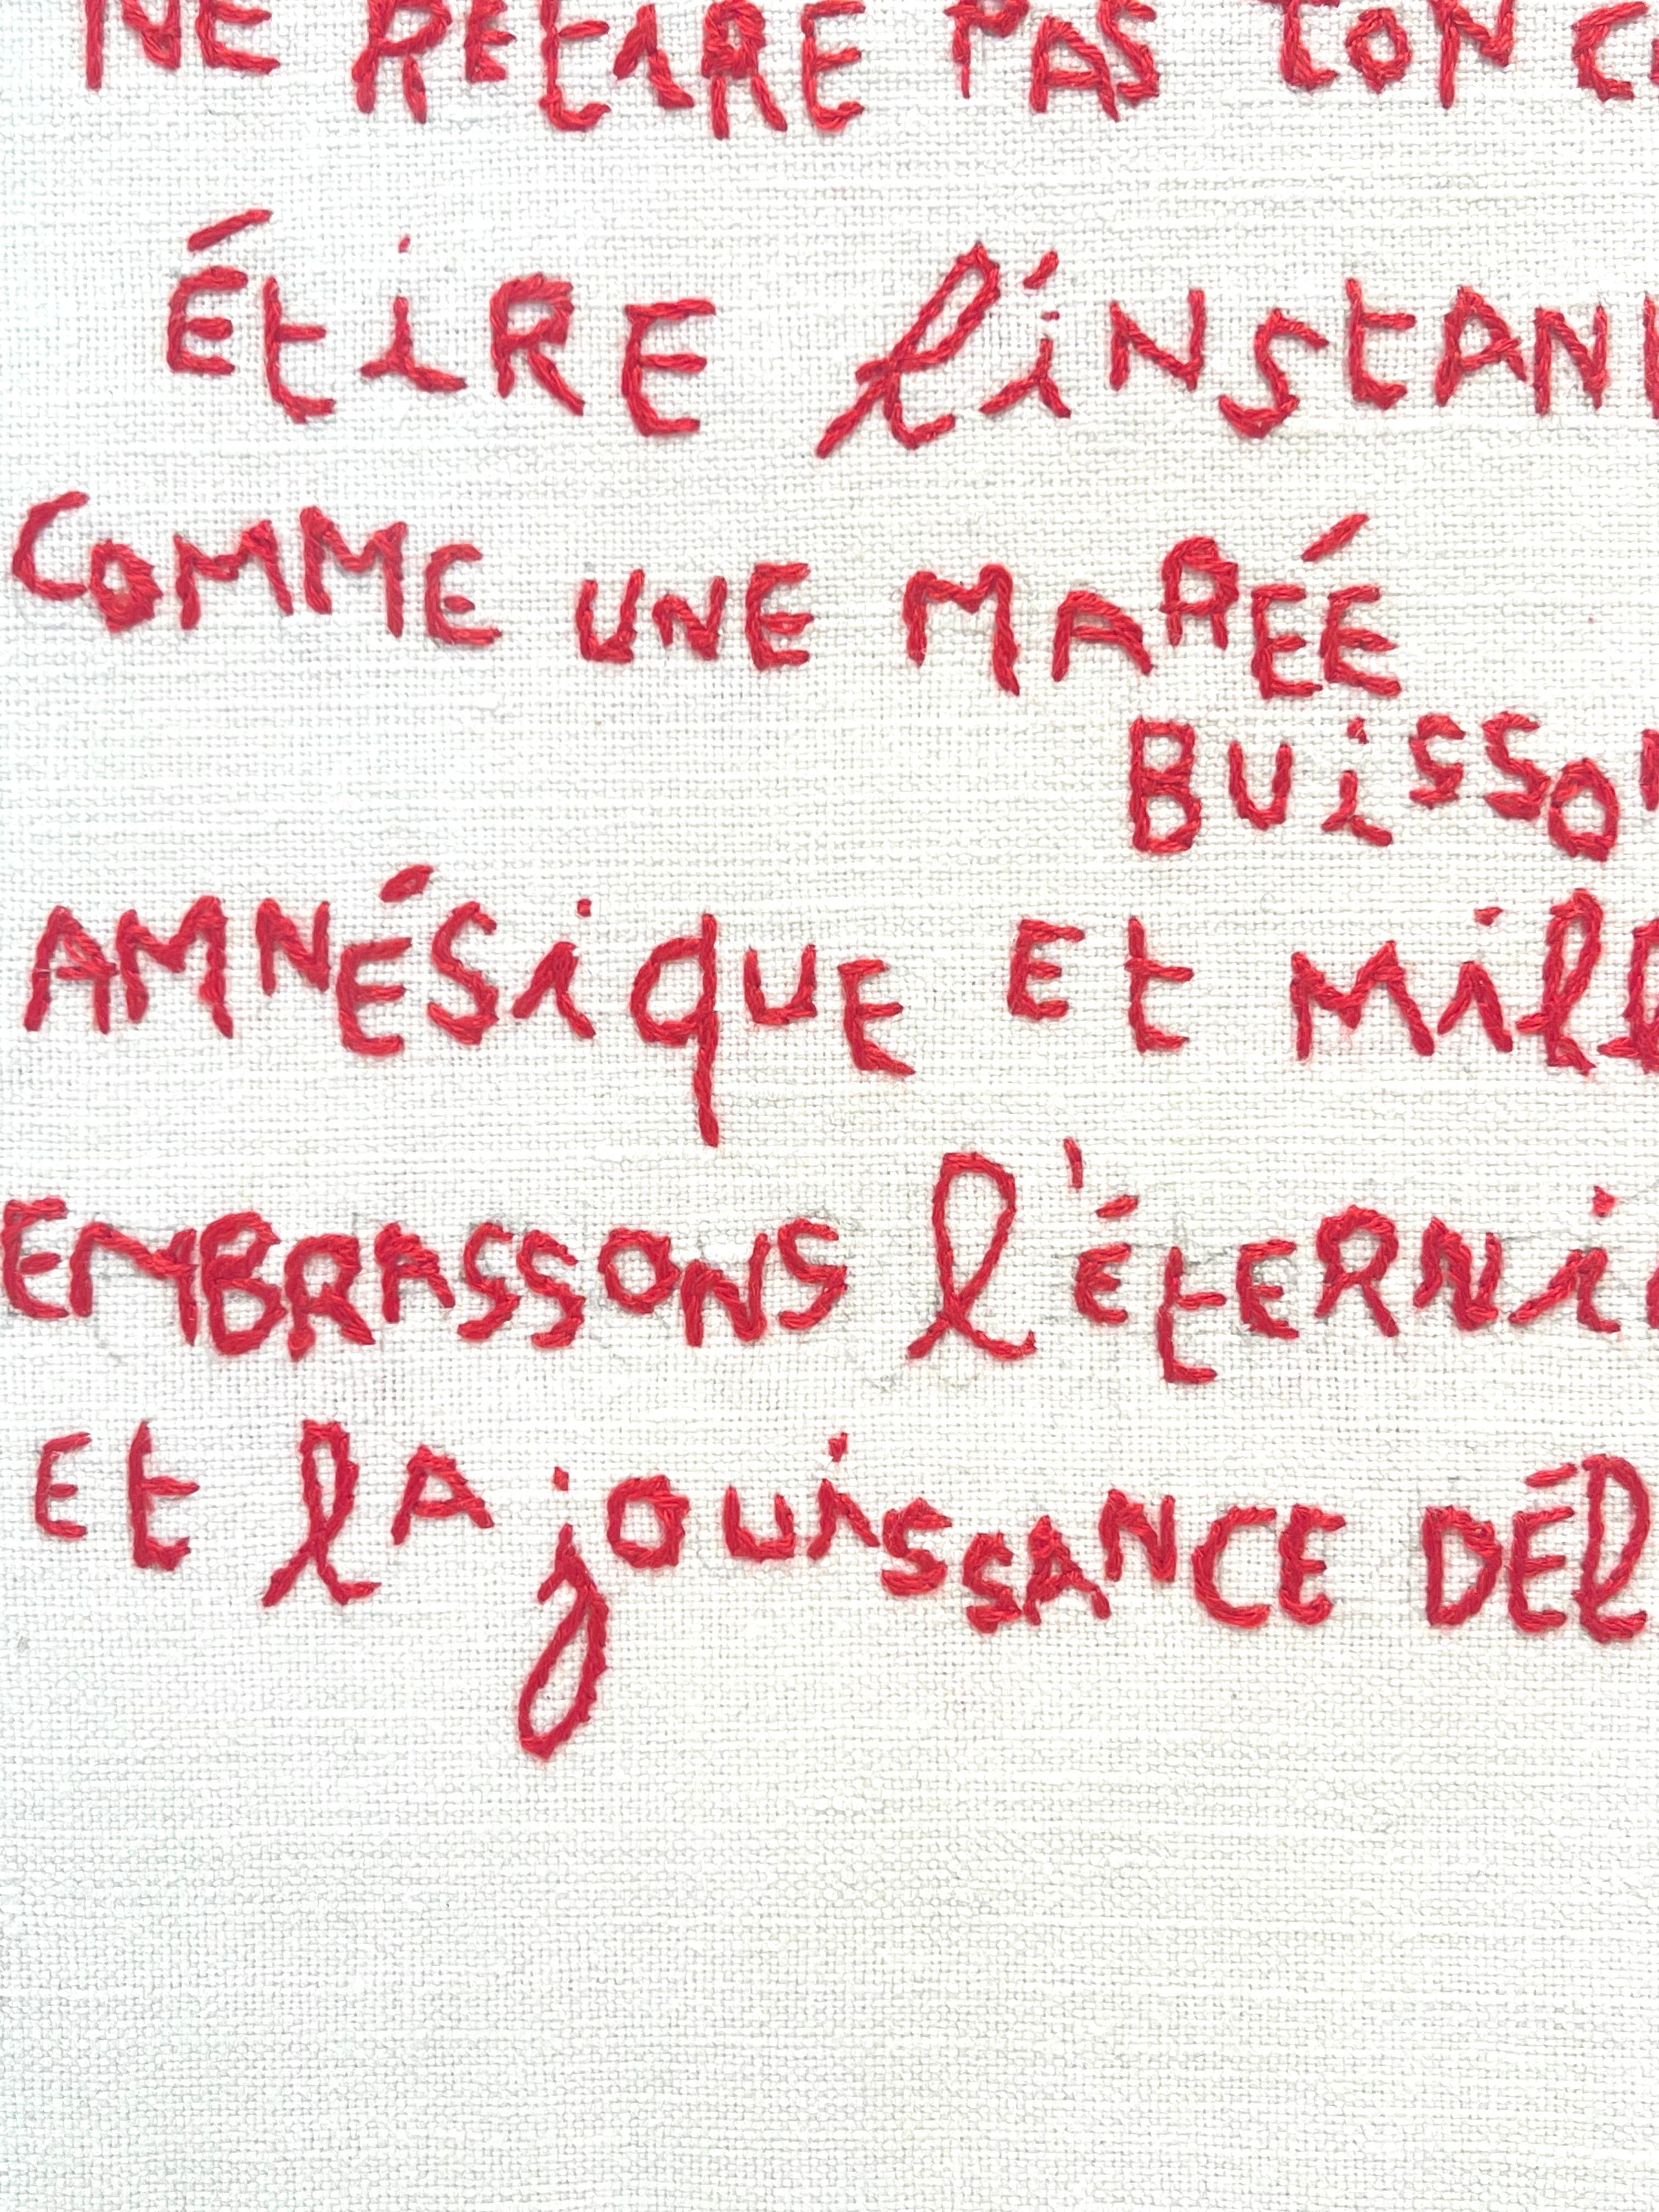 NE REtiRE PAS tON C
ÉtiRE l'iNStAN
COMME UNE MARÉE
BUiSSO
AMNÉSiqUE Et Mil
EMBRASSONS l'ÉtERNi
Et lA jOUiSSANCE DÉl